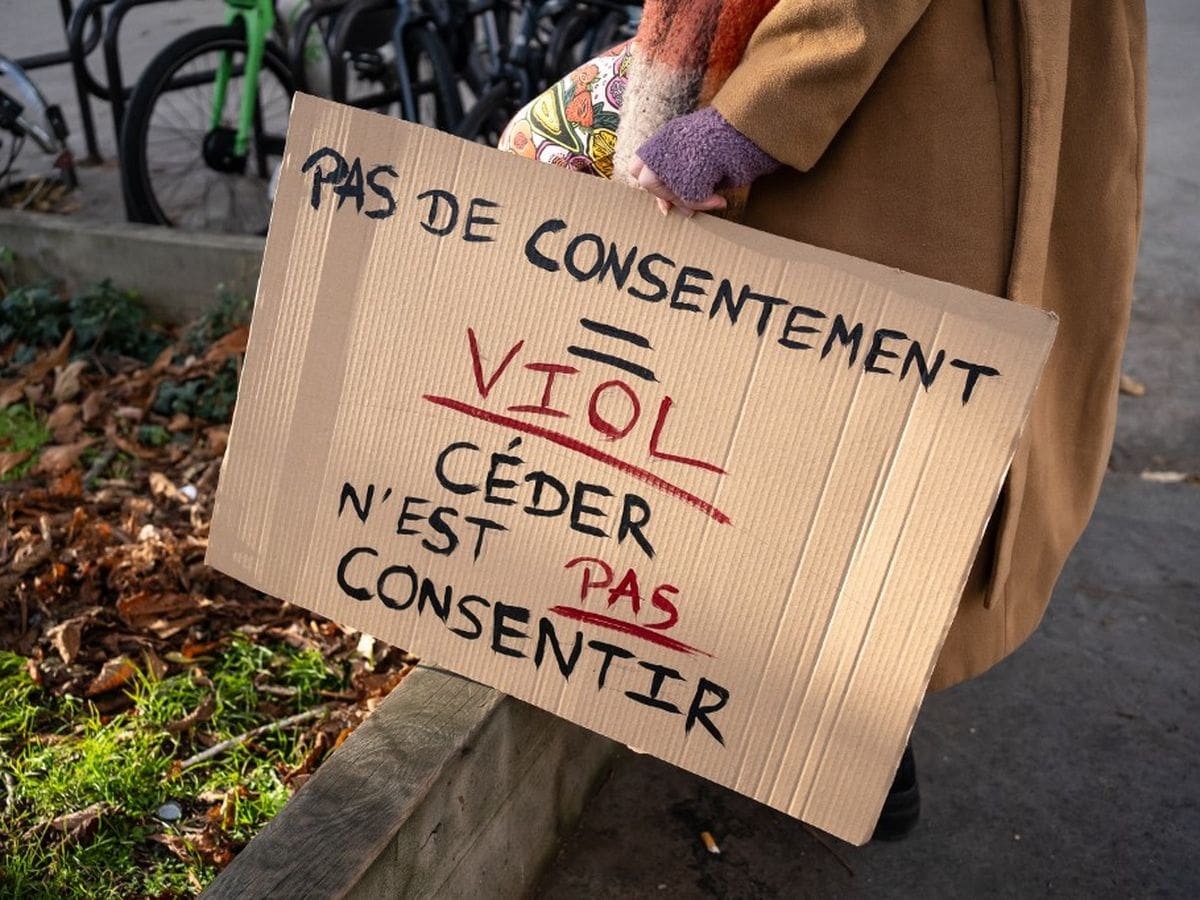 PAS DE CONSENTEMENT
=
VIOL
CÉDER
N'EST PAS
CONSENTIR